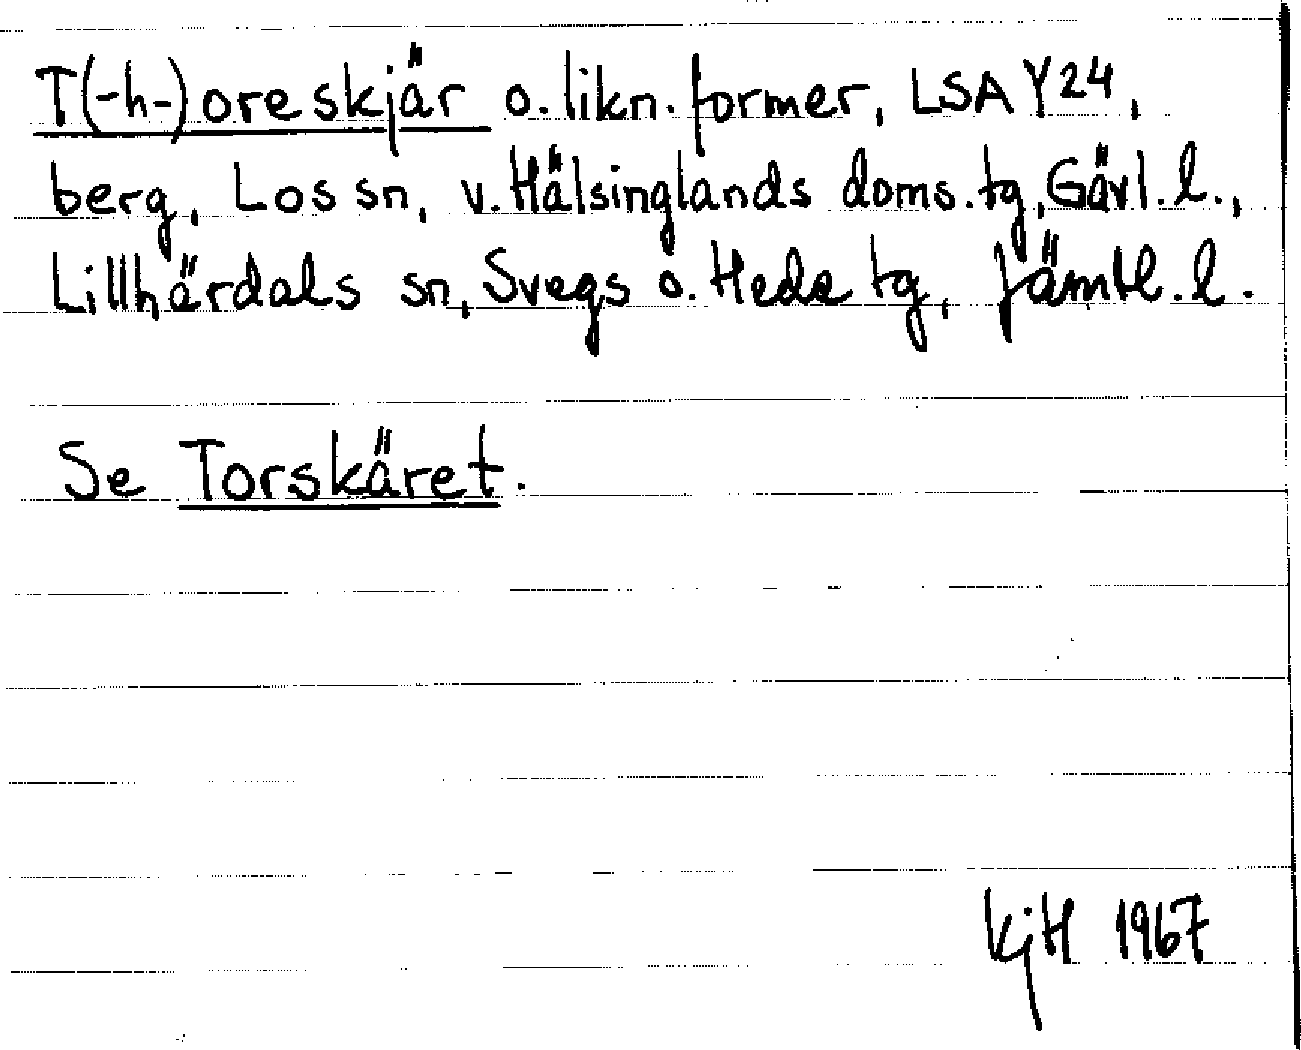 T(-h-)oreskjär o. likn. former, LSA Y24,
berg, Los sn, v. Hälsinglands doms. tg, Gävl. l.,
Lillhärdals sn, Svegs o. Hede tg, Jämtl. l.
Se Torskäret.
KjH 1967